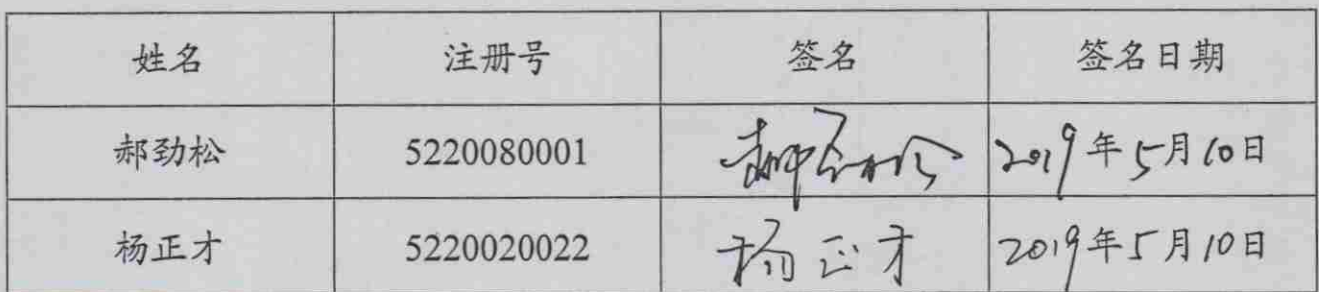 姓名 注册号 签名 签名日期
郝劲松 5220080001 郝劲松 2019年5月10日
杨正才 5220020022 杨正才 2019年5月10日